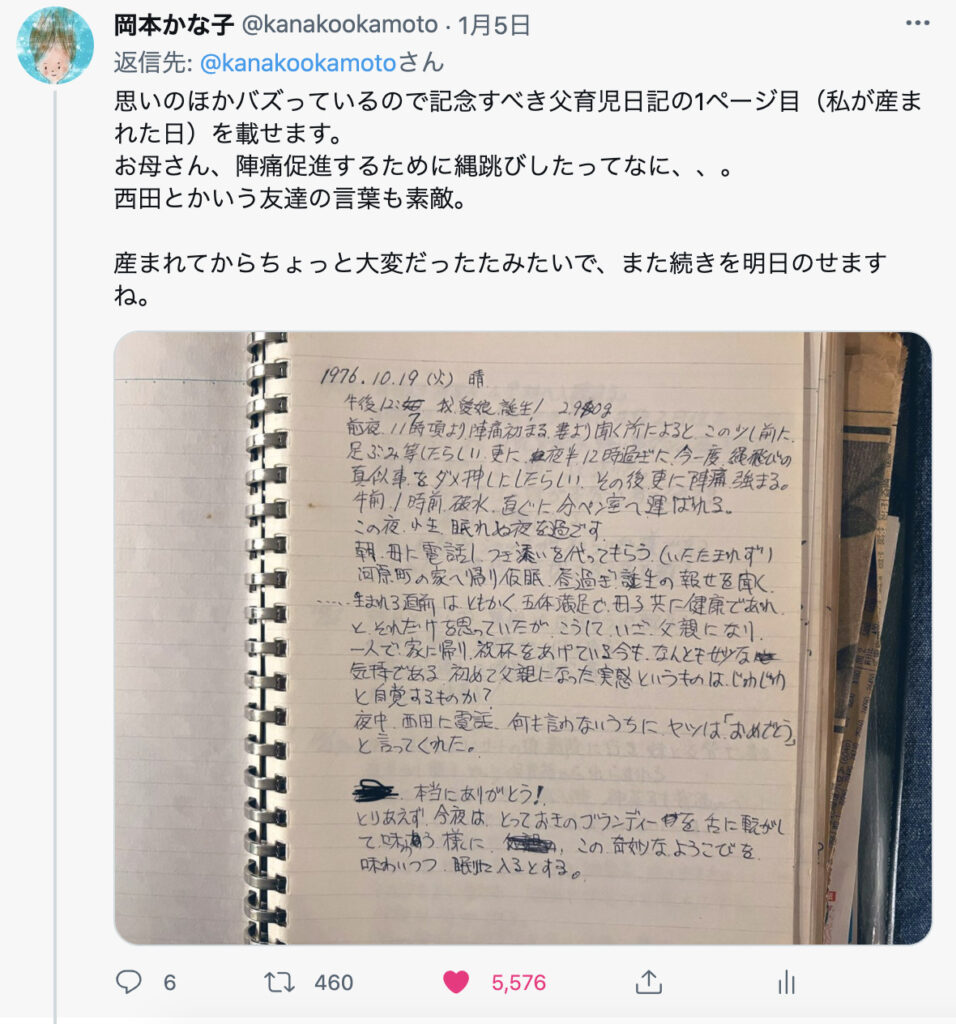 岡本かな子 @kanakookamoto · 1月5日
返信先: @kanakookamotoさん
思いのほかバズっているので記念すべき父育児日記の1ページ目（私が産ま
れた日）を載せます。
お母さん、陣痛促進するために縄跳びしたってなに、、。
西田とかいう友達の言葉も素敵。
産まれてからちょっと大変だったたみたいで、また続きを明日のせます
ね。
1976.10.19 (火) 晴
午後12: 我愛娘誕生! 2980g
前夜、11時頃より陣痛初まる。妻より聞く所によると、この少し前に、
足ぶみ等したらしい。更に、夜半12時過ぎに、今一度、縄飛びの
真似事をダメ押しにしたらしい。その後更に陣痛強まる。
午前1時前、破水、直ぐに分ベン室へ運ばれる。
この夜、小生、眠れぬ夜を過ごす。
朝、母に電話し、つき添いを代ってもらう。(いたたまれず)
河原町の家へ帰り仮眠、昼過ぎ誕生の報せを聞く。
.....生まれる直前はともかく、五体満足で、母子共に健康であれ、
と、それだけを思っていたが、こうして、いざ、父親になり、
一人で家に帰り、祝杯をあげている今も、なんとも妙な
気持である。初めて父親になった実感というものは、じわじわ
と自覚するものか?
夜中、西田に電話、何も言わないうちに、ヤツは「おめでとう」
と言ってくれた。
本当にありがとう!
とりあえず、今夜は、とっておきのブランディーを、舌に転がし
て、味わう様に、この、奇妙な、ようこびを、
味わいつつ、眠りに入るとする。
6 460 5,576